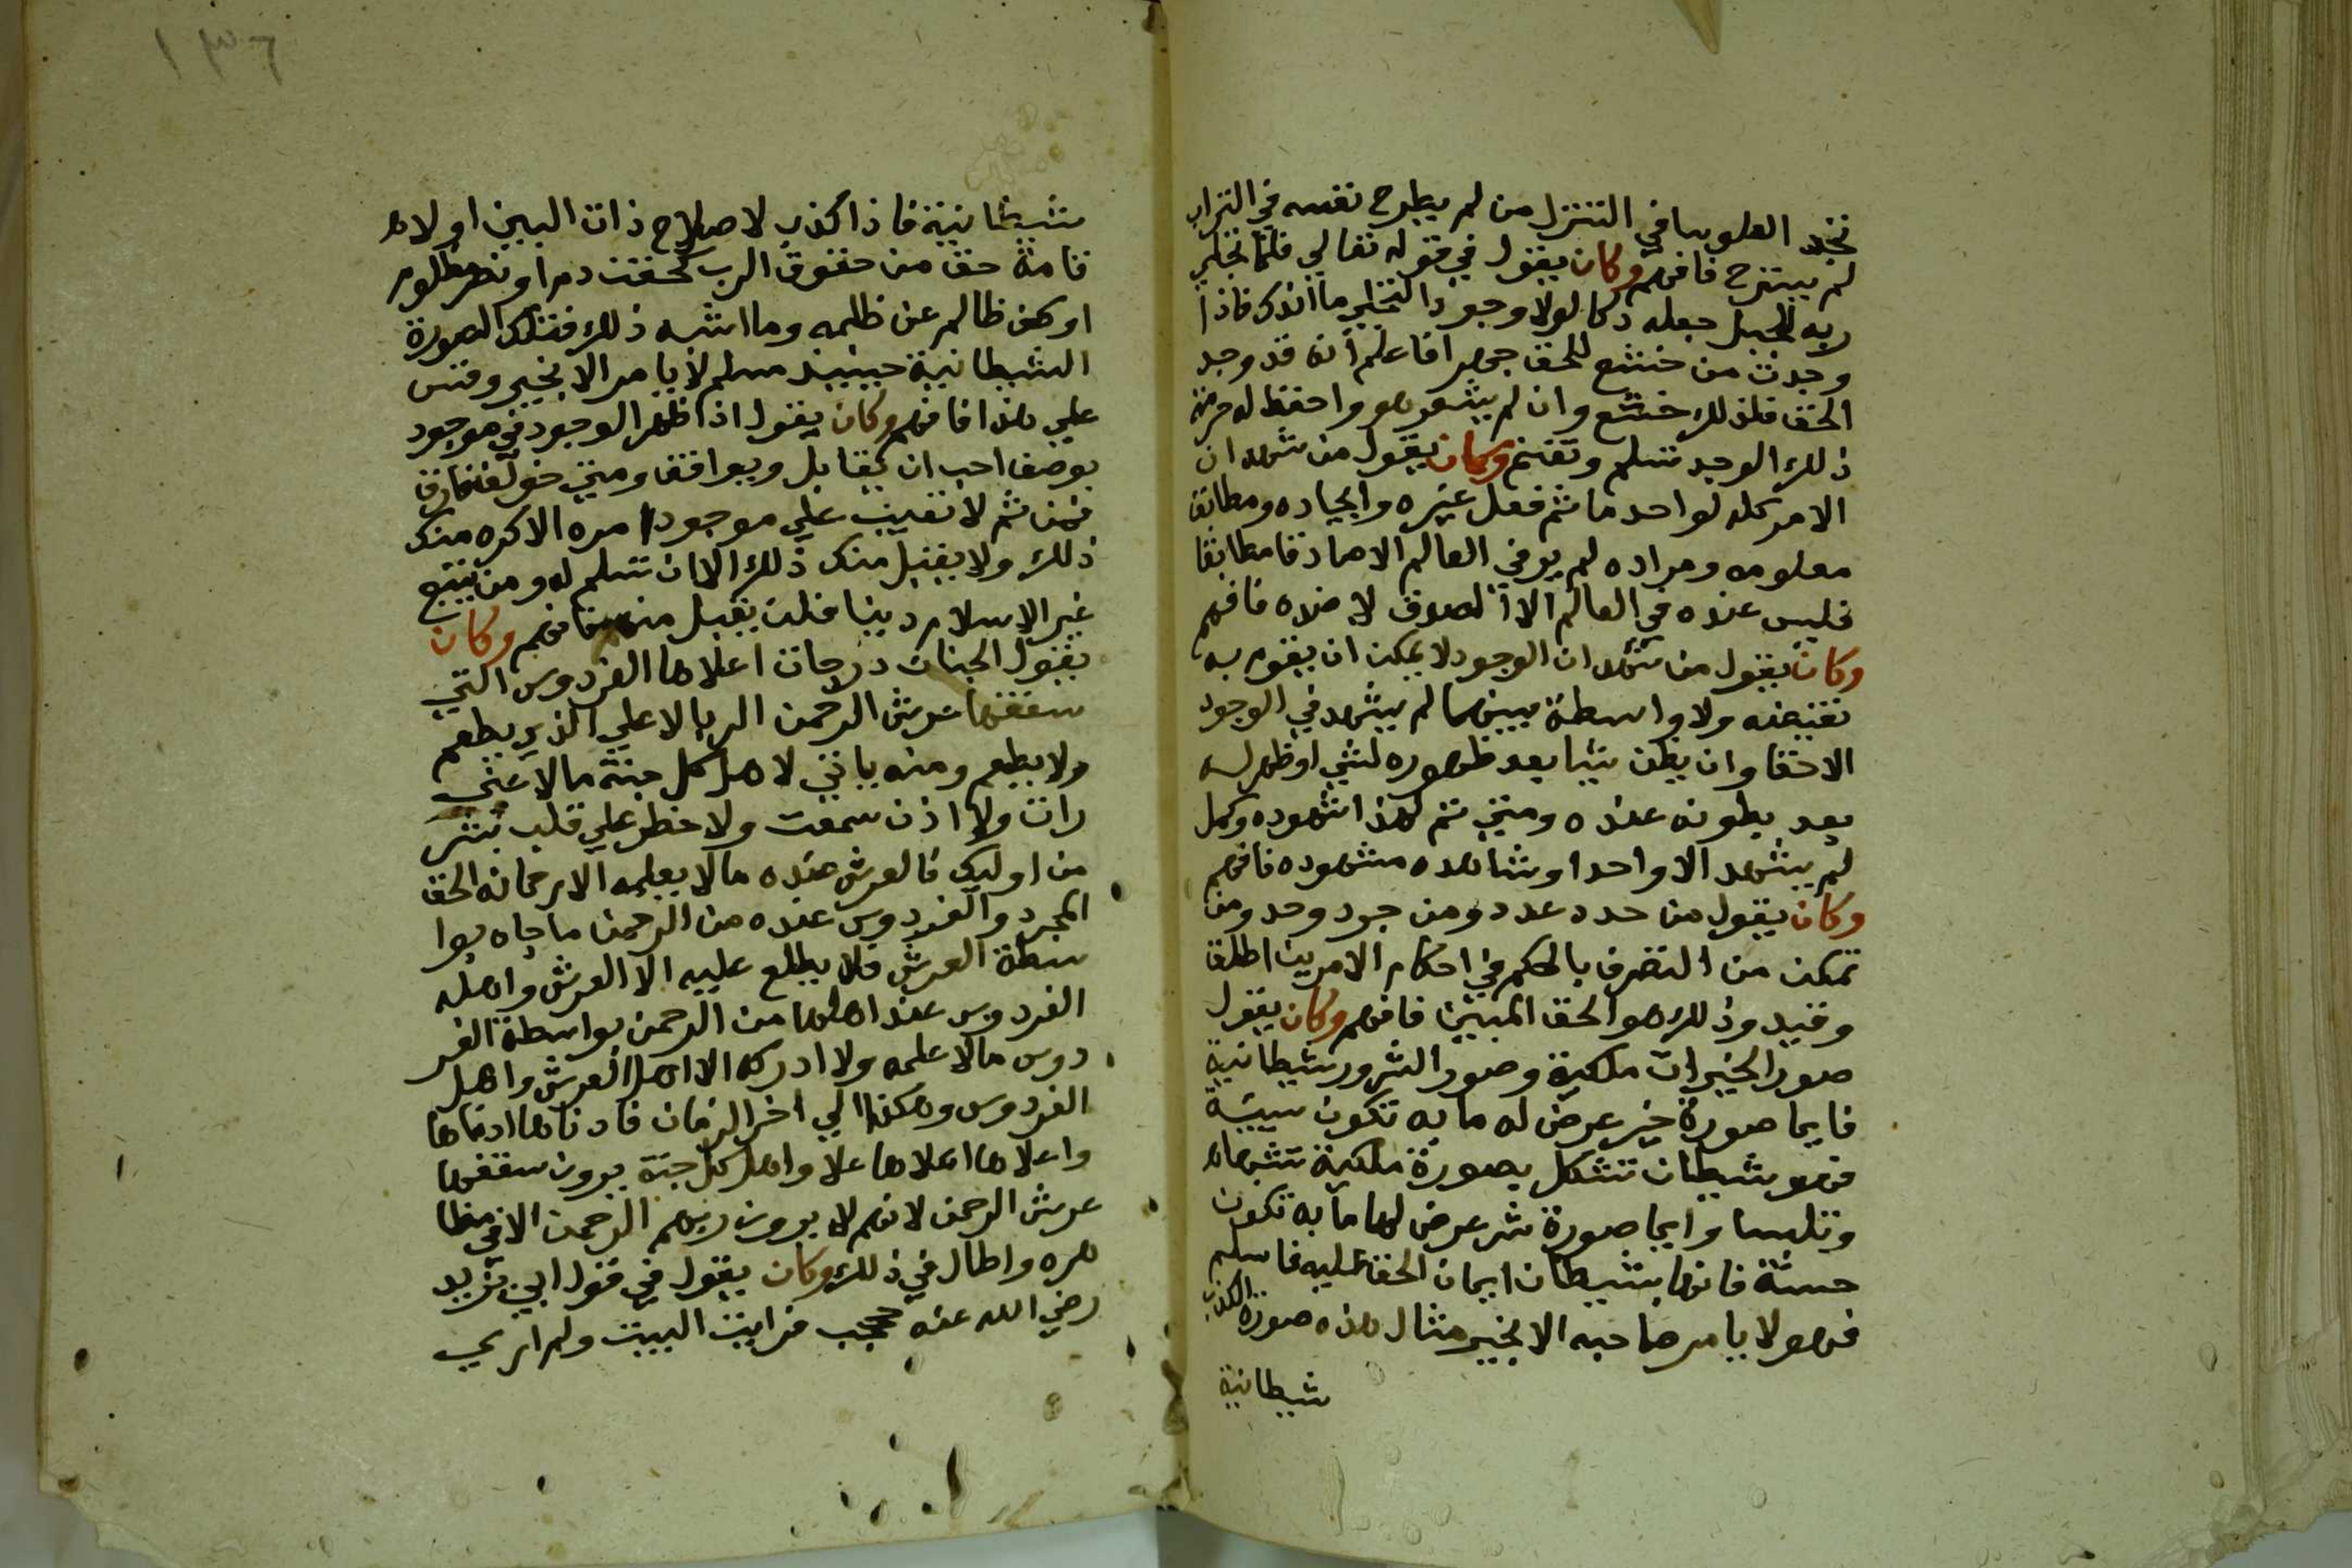 تجد العلويا في التنزل من لم يطرح نفسه في التراب
لم يسترح فافهم وكان يقول في قوله تعالي فلما تجلي
ربه للجبل جعله دكا لولا وجود التجلي ما اندك فاذا
وجدت من خشع للحق جهرا فاعلم انه قد وجد
الحق فلذلك خشع وان لم يشعر هو واحفظ له حرمة
ذلك الوجد تسلم وتغنم وكان يقول من شهد ان
الامر كله لواحد ما ثم فعل غيره وايجاده ومطابق
معلومه ومراده لم ير في العالم الا صادقا مطابقا
فليس عنده في العالم الا الصدق لا ضده فافهم
وكان يقول من شهد ان الوجود لا يمكن ان يقوم به
نقيضه ولا واسطة بينهما لم يشهد في الوجود
الا حقا وان بطن شيا بعد ظهوره لشي او ظهر له
بعد بطونه عنده ومتي تم لهذا شهوده وكمل
لم يشهد الا واحدا وشاهده مشهوده فافهم
وكان يقول من حدد عدد ومن جرد وحد ومن
تمكن من التصرف بالحكم في احكام الامرين اطلق
وقيد وذلك هو الحق المبين فافهم وكان يقول
صور الخيرات ملكية وصور الشرور شيطانية
فايما صورة خير عرض له ما به تكون سيئة
فهو شيطان تشكل بصورة ملكية تشبها
وتلبسا وايما صورة شر عرض لها ما به تكون
حسنة فانها شيطان ايمان الحق عليه فاسلم
فهو لا يامر صاحبه الا بخير مثال هذه صورة الكذب
شيطانية
١٣٦
شيطانية فاذا كذب لاصلاح ذات البين او لا
قامة حق من حقوق الرب كحقن دم او نصر مظلوم
او كف ظالم عن ظلمه وما اشبه ذلك فتلك الصورة
الشيطانية حينيذ مسلم لا يامر الا بخير وقس
علي هذا فافهم وكان يقول اذا ظهر الوجود في موجود
بوصف احب ان يقابل ويوافق ومتي خولف فارق
فمن ثم لا تعيب علي موجود امره الا كره منك
ذلك ولا يقبل منك ذلك الا ان تسلم له ومن يبتغ
غير الاسلام دينا فلن يقبل منه فافهم وكان
يقول الجنان درجات اعلاها الفردوس التي
سقفها عرش الرحمن الرب الاعلي الذي يطعم
ولا يطعم ومنه ياتي لاهل كل جنة ما لا عين
رات ولا اذن سمعت ولا خطر علي قلب بشر
من اوليك فالعرش عنده ما لا يعلمه الا رحمانه الحق
المجرد والفردوس عنده من الرحمن ما جاه بوا
سطة العرش فلا يطلع عليه الا العرش واهله
الفردوس عند اهلها من الرحمن بواسطة الفر
دوس ما لا علمه ولا ادركه الا اهل العرش واهل
الفردوس وهكذا الي اخر الزمان فادناها ادناها
واعلاها اعلاها علا واهل كل جنة يرون سقفها
عرش الرحمن لانهم لا يرون ربهم الرحمن الا في مظا
هره واطال في ذلك وكان يقول في قول ابي يزيد
رضي الله عنه حججت فرايت البيت ولم ار